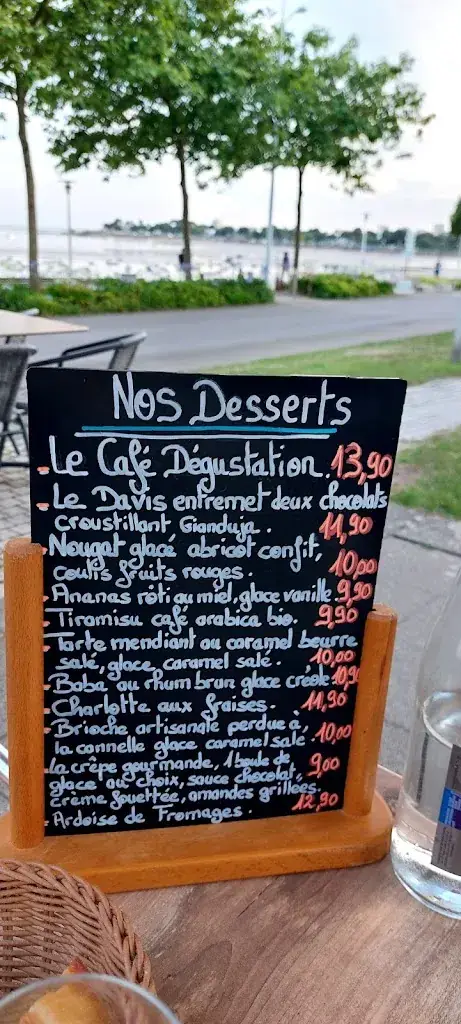 Nos Desserts
- Le Café Dégustation. 13,90
- Le Davis entremet deux chocolats
croustillant Gianduja. 11,90
- Nougat glacé abricot confit,
coulis fruits rouges. 10,00
- Ananas rôti au miel, glace vanille. 9,90
- Tiramisu café arabica bio. 9,90
- Tarte mendiant au caramel beurre
salé, glace caramel salé. 10,00
- Baba au rhum brun glace créole 10,90
- Charlotte aux fraises. 11,90
- Brioche artisanale perdue à,
la cannelle glace caramel salé. 10,00
- La crêpe gourmande, 1 boule de
glace au choix, sauce chocolat, 9,00
crème fouettée, amandes grillées.
- Ardoise de Fromages. 12,90